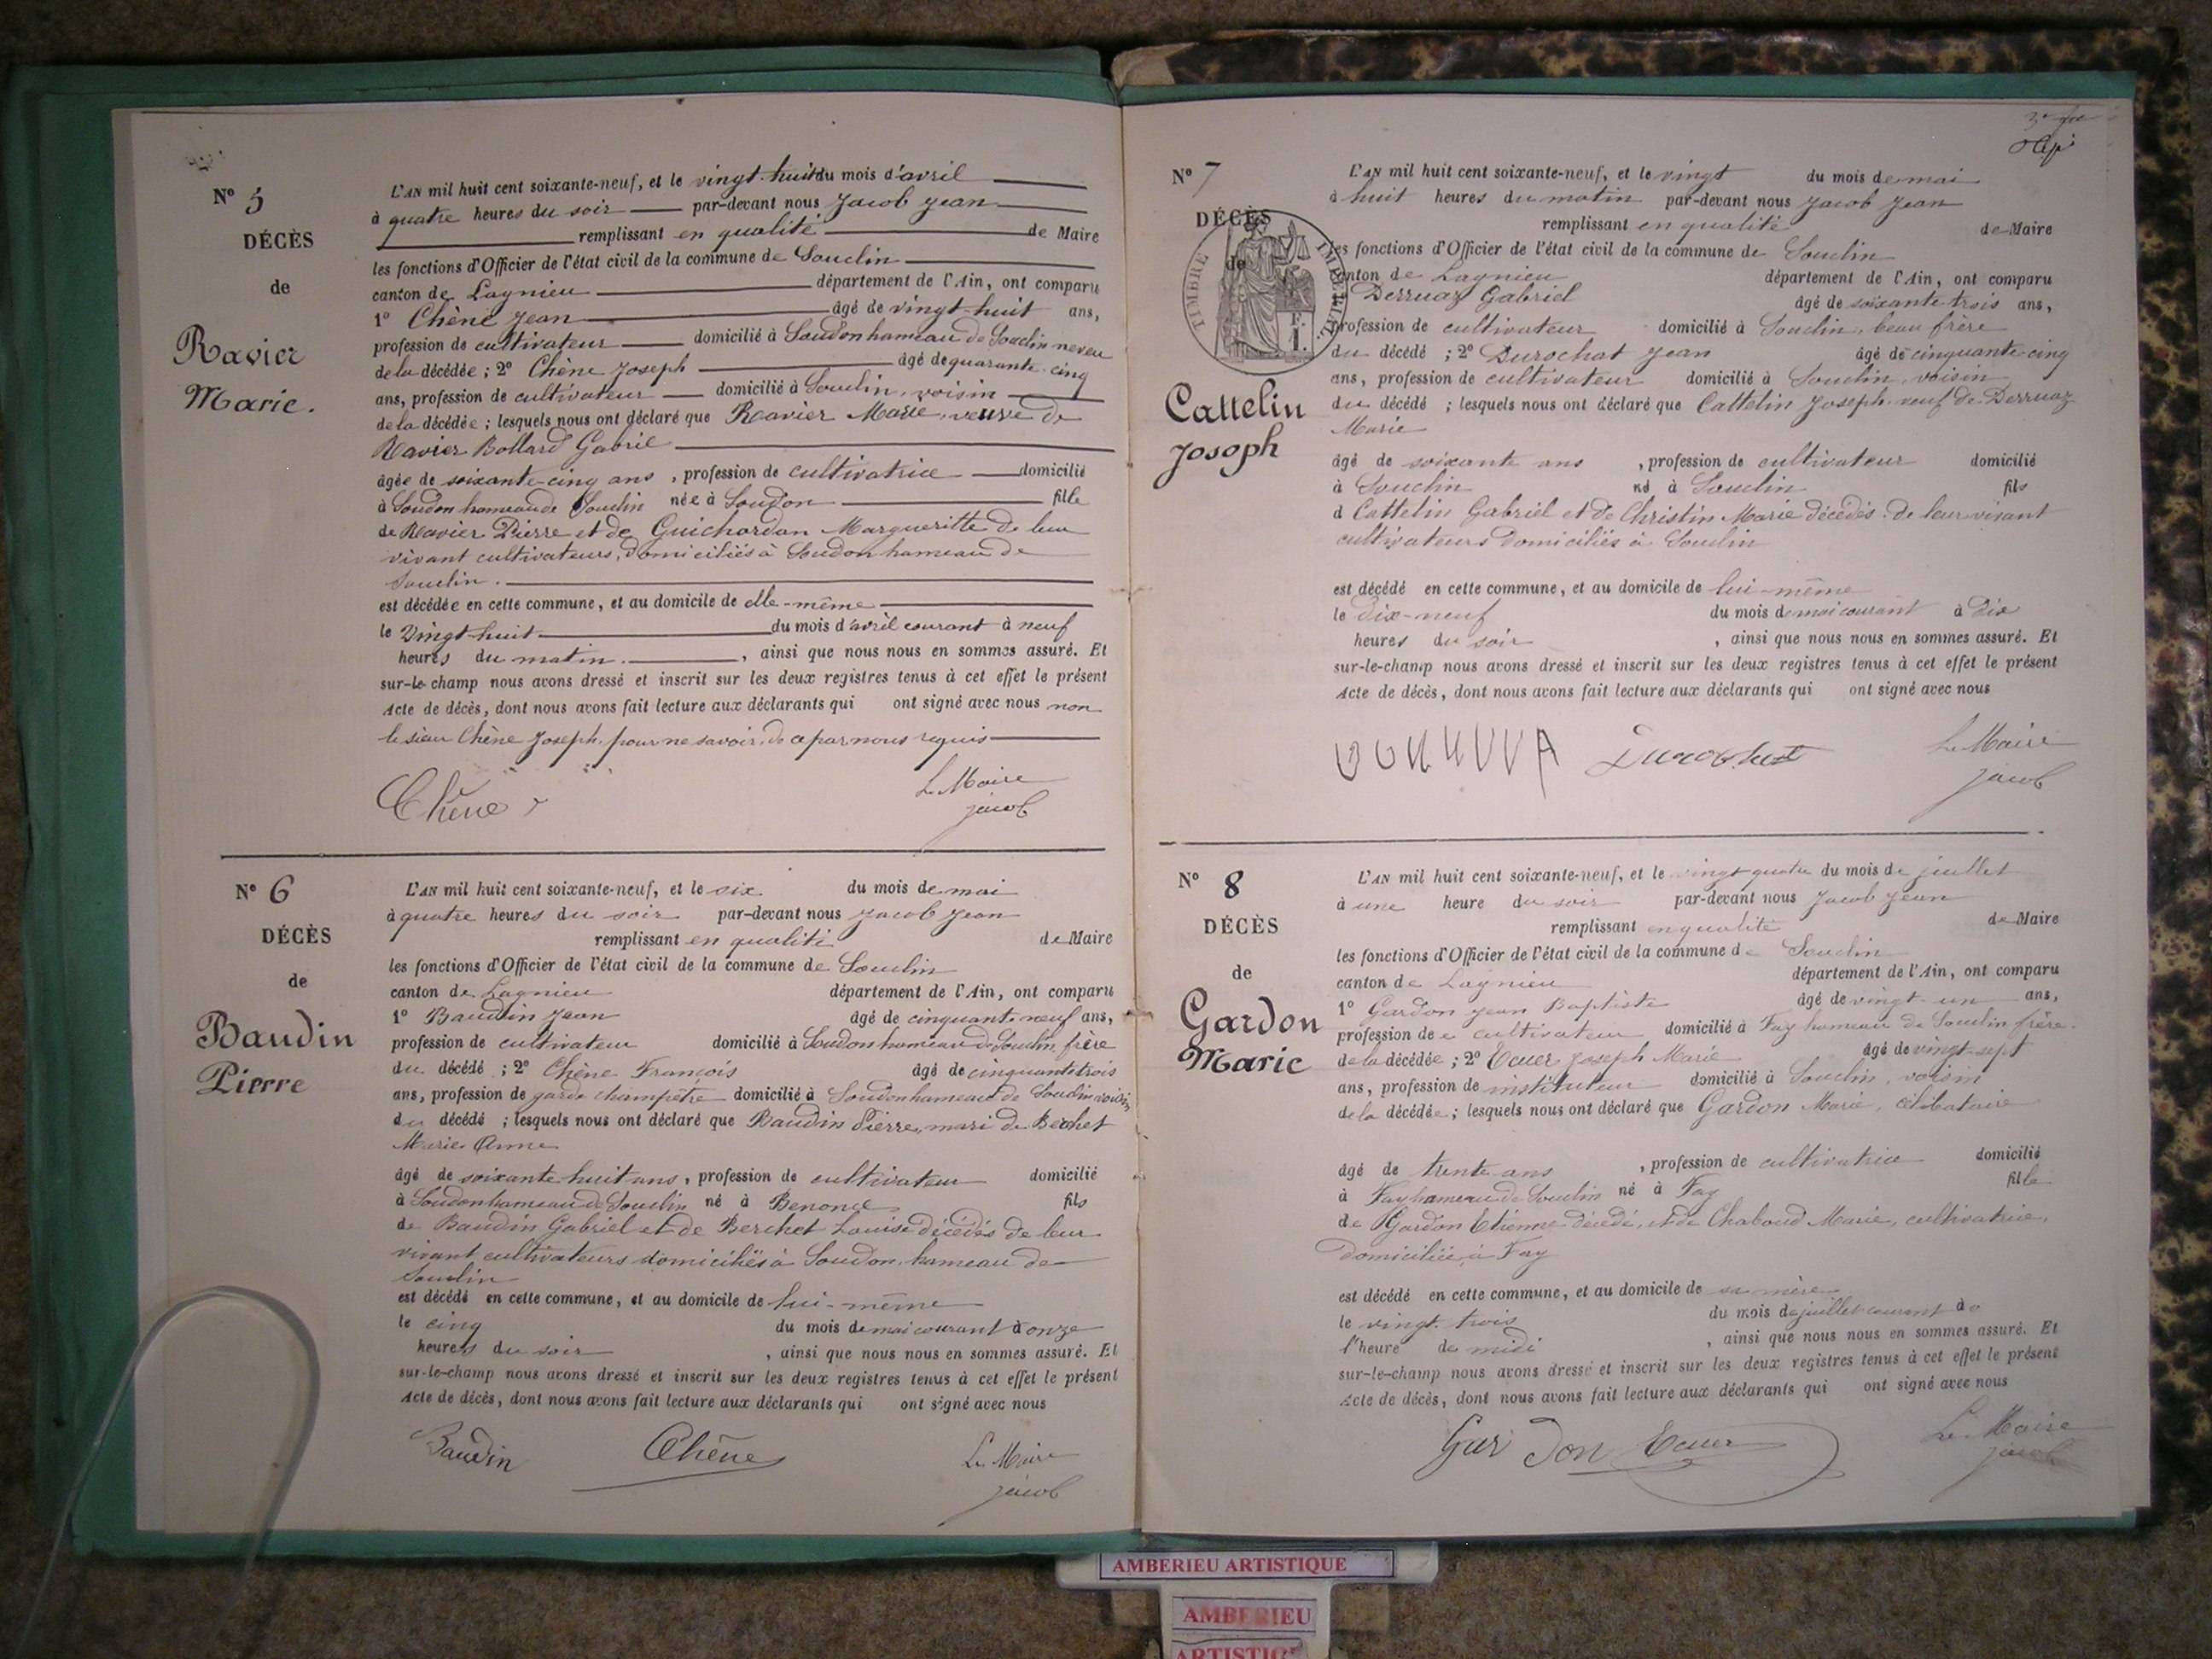 N° 5
DÉCÈS
de
Ravier
Marie.
L'AN mil huit cent soixante-neuf, et le vingt-huit du mois d'avril
à quatre heures du soir par-devant nous Jacob Jean
remplissant en qualité de Maire
les fonctions d'Officier de l'état civil de la commune de Souclin
canton de Lagnieu département de l'Ain, ont comparu
1° Chêne Jean âgé de vingt-huit ans,
profession de cultivateur domicilié à Soudon hameau de Souclin neveu
de la décédée ; 2° Chêne Joseph âgé de quarante-cinq
ans, profession de cultivateur domicilié à Souclin, voisin
de la décédée ; lesquels nous ont déclaré que Ravier Marie, veuve de
Ravier Bollard Gabriel
âgée de soixante-cinq ans, profession de cultivatrice domicilié
à Soudon hameau de Souclin née à Soudon fille
de Ravier Pierre et de Guichardan Margueritte de leur
vivant cultivateurs, domiciliés à Soudon hameau de
Souclin.
est décédée en cette commune, et au domicile de elle-même
le vingt-huit du mois d'avril courant à neuf
heures du matin. , ainsi que nous nous en sommes assuré. Et
sur-le-champ nous avons dressé et inscrit sur les deux registres tenus à cet effet le présent
Acte de décès, dont nous avons fait lecture aux déclarants qui ont signé avec nous non
le sieur Chêne Joseph, pour ne savoir, de ce par nous requis
Chêne Le Maire
Jacob
N° 6
DÉCÈS
de
Baudin
Pierre
L'AN mil huit cent soixante-neuf, et le six du mois de mai
à quatre heures du soir par-devant nous Jacob Jean
remplissant en qualité de Maire
les fonctions d'Officier de l'état civil de la commune de Souclin
canton de Lagnieu département de l'Ain, ont comparu
1° Baudin Jean âgé de cinquante-neuf ans,
profession de cultivateur domicilié à Soudon hameau de Souclin, frère
du décédé ; 2° Chêne François âgé de cinquante trois
ans, profession de garde champêtre domicilié à Soudon hameau de Souclin voisin
du décédé ; lesquels nous ont déclaré que Baudin Pierre, mari de Berchet
Marie Anne
âgé de soixante huit ans, profession de cultivateur domicilié
à Soudon hameau de Souclin né à Benonce fils
de Baudin Gabriel et de Berchet Louise décédés de leur
vivant cultivateurs domiciliés à Soudon, hameau de
Souclin
est décédé en cette commune, et au domicile de lui-même
le cinq du mois de mai courant à onze
heures du soir , ainsi que nous nous en sommes assuré. Et
sur-le-champ nous avons dressé et inscrit sur les deux registres tenus à cet effet le présent
Acte de décès, dont nous avons fait lecture aux déclarants qui ont signé avec nous
Baudin Chêne Le Maire
Jacob
N° 7
DÉCÈS
de
TIMBRE IMPÉRIAL.
F.
1.
Cattelin
Joseph
L'AN mil huit cent soixante-neuf, et le vingt du mois de mai
à huit heures du matin par-devant nous Jacob Jean
remplissant en qualité de Maire
les fonctions d'Officier de l'état civil de la commune de Souclin
canton de Lagnieu département de l'Ain, ont comparu
Derruaz Gabriel âgé de soixante-trois ans,
profession de cultivateur domicilié à Souclin, beau frère
du décédé ; 2° Durochat Jean âgé de cinquante-cinq
ans, profession de cultivateur domicilié à Souclin, voisin
du décédé ; lesquels nous ont déclaré que Cattelin Joseph, veuf de Derruaz
Marie
âgé de soixante ans , profession de cultivateur domicilié
à Souclin né à Souclin fils
d Cattelin Gabriel et de Christin Marie décédés de leur vivant
cultivateurs domiciliés à Souclin
est décédé en cette commune, et au domicile de lui-même
le dix-neuf du mois de mai courant à dix
heures du soir , ainsi que nous nous en sommes assuré. Et
sur-le-champ nous avons dressé et inscrit sur les deux registres tenus à cet effet le présent
Acte de décès, dont nous avons fait lecture aux déclarants qui ont signé avec nous
Durochat Le Maire
Jacob
N° 8
DÉCÈS
de
Gardon
Marie
L'AN mil huit cent soixante-neuf, et le vingt-quatre du mois de juillet
à une heure du soir par-devant nous Jacob Jean
remplissant en qualité de Maire
les fonctions d'Officier de l'état civil de la commune de Souclin
canton de Lagnieu département de l'Ain, ont comparu
1° Gardon Jean Baptiste âgé de vingt-un ans,
profession de cultivateur domicilié à Fay hameau de Souclin frère
de la décédée ; 2° Ecuer Joseph Marie âgé de vingt-sept
ans, profession de instituteur domicilié à Souclin, voisin
de la décédée ; lesquels nous ont déclaré que Gardon Marie, célibataire
âgé de trente ans , profession de cultivatrice domicilié
à Fay hameau de Souclin né à Fay fille
de Gardon Etienne décédé, et de Chaboud Marie, cultivatrice,
domiciliée à Fay
est décédé en cette commune, et au domicile de sa mère
le vingt-trois du mois de juillet courant à
l'heure de midi , ainsi que nous nous en sommes assuré. Et
sur-le-champ nous avons dressé et inscrit sur les deux registres tenus à cet effet le présent
Acte de décès, dont nous avons fait lecture aux déclarants qui ont signé avec nous
Gardon Ecuer Le Maire
Jacob
AMBERIEU ARTISTIQUE
AMBERIEU
ARTISTIQUE